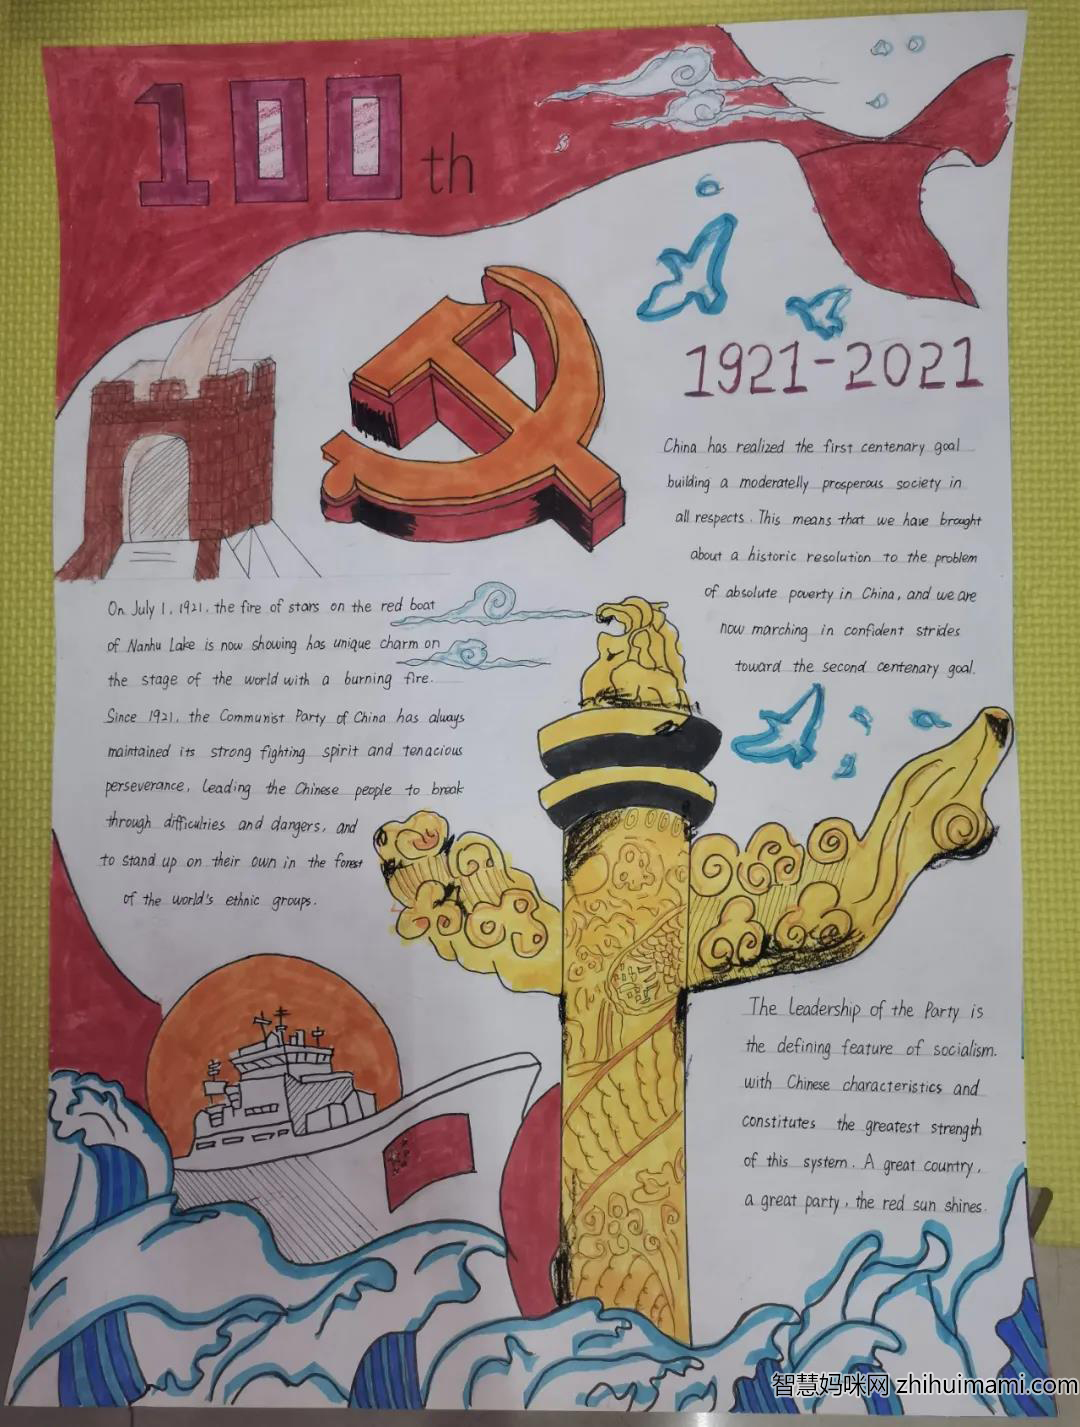 100th
1921-2021
China has realized the first centenary goal
building a moderatelly prosperous society in
all respects. This means that we have brought
about a historic resolution to the problem
of absolute poverty in China, and we are
now marching in confident strides
toward the second centenary goal.
On July 1, 1921, the fire of stars on the red boat
of Nanhu Lake is now showing has unique charm on
the stage of the world with a burning fire.
Since 1921, the Communist Party of China has always
maintained its strong fighting spirit and tenacious
perseverance, leading the Chinese people to break
through difficulties and dangers, and
to stand up on their own in the forest
of the world's ethnic groups.
The Leadership of the Party is
the defining feature of socialism.
with Chinese characteristics and
constitutes the greatest strength
of this system. A great country,
a great party, the red sun shines.
智慧妈咪网 zhihuimami.com